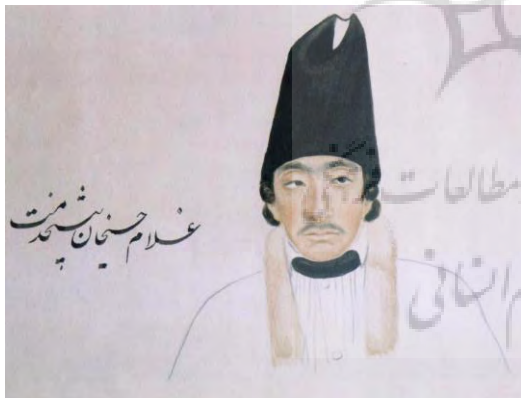 غلام حسینخان پیشخدمت
مطالعات
انسانی